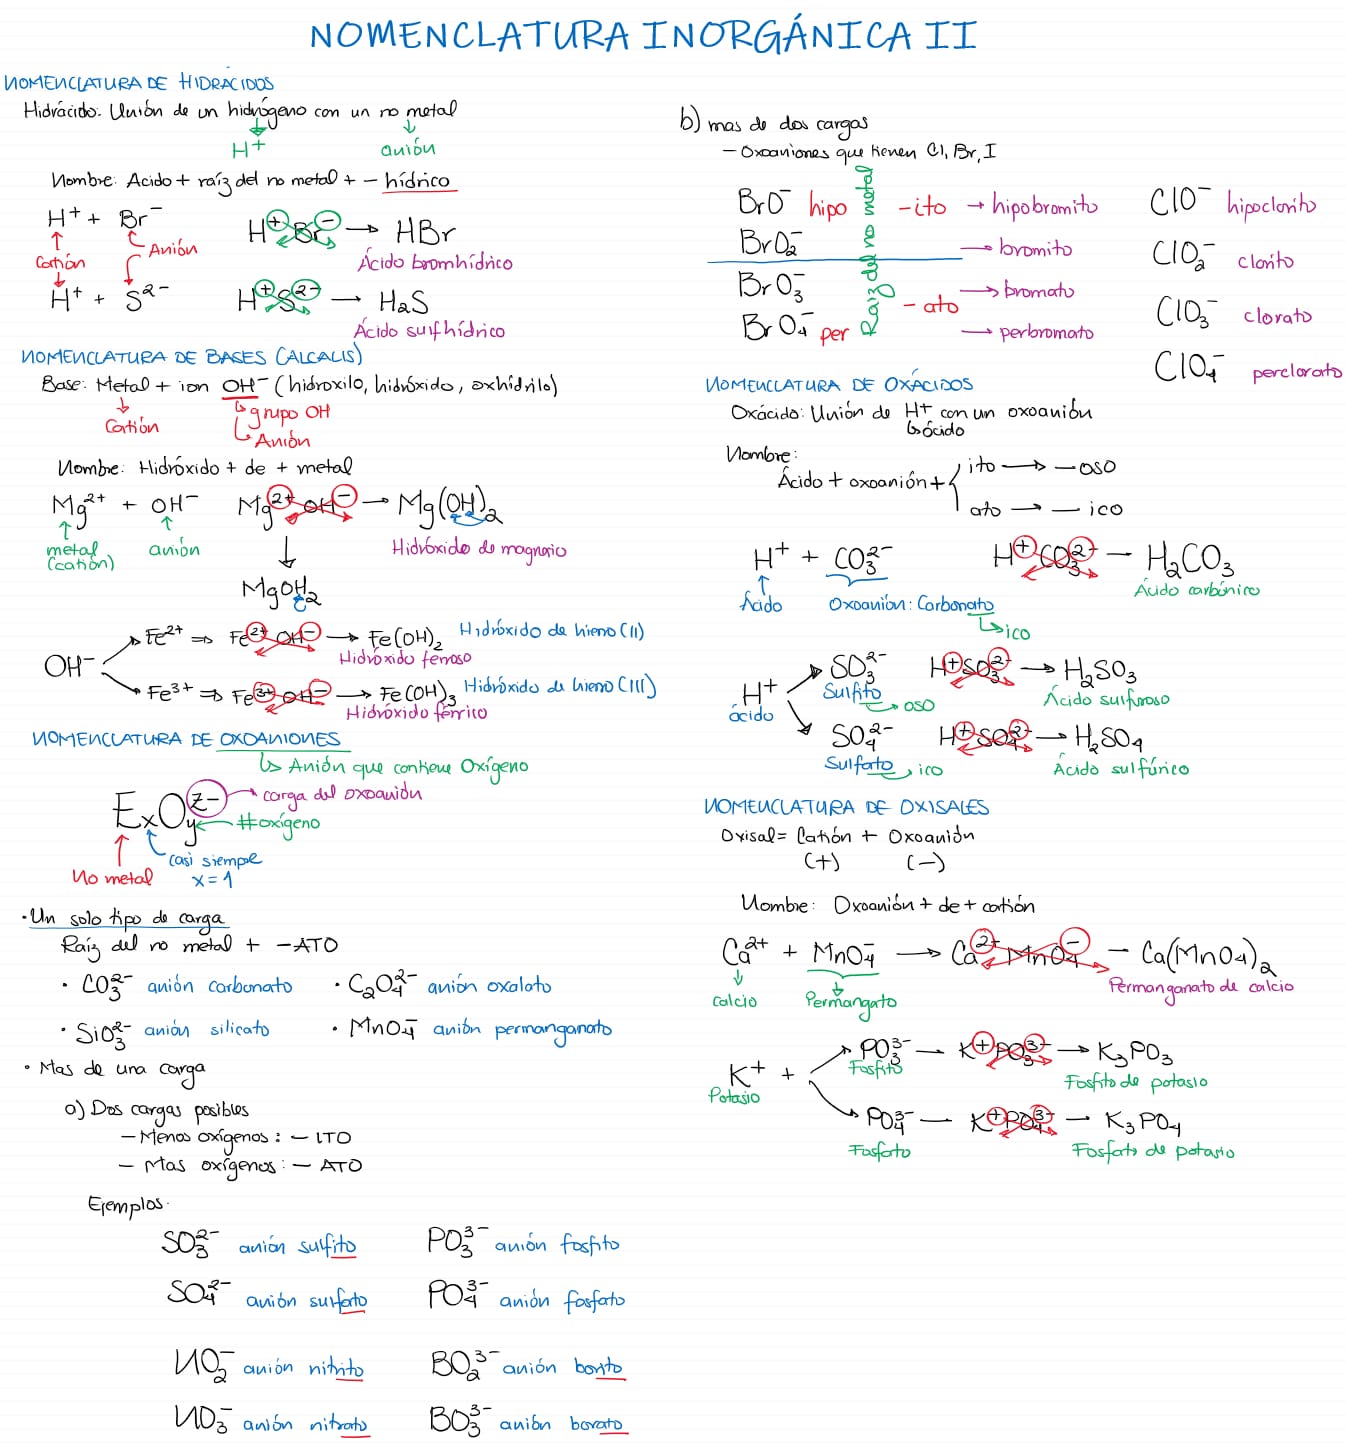 NOMENCLATURA INORGÁNICA II
NOMENCLATURA DE HIDRÁCIDOS
Hidrácido: Unión de un hidrógeno con un no metal
H⁺ anión
Nombre: Acido + raíz del no metal + - hídrico
H⁺ + Br⁻ H⁺ Br⁻ → HBr
Catión Anión Ácido bromhídrico
H⁺ + S²⁻ H⁺ S²⁻ → H₂S
Ácido sulfhídrico
NOMENCLATURA DE BASES (ALCALIS)
Base: Metal + ion OH⁻ (hidroxilo, hidróxido, oxhidrilo)
Catión ↳ grupo OH
↳ Anión
Nombre: Hidróxido + de + metal
Mg²⁺ + OH⁻ Mg²⁺ OH⁻ → Mg(OH)₂
metal (catión) anión Hidróxido de magnesio
MgOH₂
OH⁻
Fe²⁺ ⇒ Fe²⁺ OH⁻ → Fe(OH)₂ Hidróxido de hierro (II)
Hidróxido ferroso
Fe³⁺ ⇒ Fe³⁺ OH⁻ → Fe(OH)₃ Hidróxido de hierro (III)
Hidróxido férrico
NOMENCLATURA DE OXOANIONES
↳ Anión que contiene Oxígeno
ExOy^z-
→ carga del oxoanión
# oxígeno
casi siempre
No metal x = 1
· Un solo tipo de carga
Raíz del no metal + -ATO
· CO₃²⁻ anión carbonato · C₂O₄²⁻ anión oxalato
· SiO₃²⁻ anión silicato · MnO₄⁻ anión permanganato
· Mas de una carga
a) Dos cargas posibles
- Menos oxígenos: - ITO
- Mas oxígenos: - ATO
Ejemplos:
SO₃²⁻ anión sulfito PO₃³⁻ anión fosfito
SO₄²⁻ anión sulfato PO₄³⁻ anión fosfato
NO₂⁻ anión nitrito BO₂³⁻ anión borito
NO₃⁻ anión nitrato BO₃³⁻ anión borato
b) mas de dos cargas
- Oxoaniones que tienen Cl, Br, I
Raíz del no metal
BrO⁻ hipo -ito → hipobromito ClO⁻ hipoclorito
BrO₂⁻ → bromito ClO₂⁻ clorito
BrO₃⁻ - ato → bromato ClO₃⁻ clorato
BrO₄⁻ per → perbromato ClO₄⁻ perclorato
NOMENCLATURA DE OXÁCIDOS
Oxácido: Unión de H⁺ con un oxoanión
↳ ácido
Nombre:
Ácido + oxoanión +
ito → - oso
ato → - ico
H⁺ + CO₃²⁻ H⁺ CO₃²⁻ - H₂CO₃
Ácido Oxoanión: Carbonato Ácido carbónico
↳ ico
H⁺
ácido
SO₃²⁻ H⁺ SO₃²⁻ → H₂SO₃
Sulfito → oso Ácido sulfuroso
SO₄²⁻ H⁺ SO₄²⁻ → H₂SO₄
Sulfato → ico Ácido sulfúrico
NOMENCLATURA DE OXISALES
Oxisal = Catión + Oxoanión
(+) (-)
Nombre: Oxoanión + de + catión
Ca²⁺ + MnO₄⁻ → Ca²⁺ MnO₄⁻ - Ca(MnO₄)₂
calcio Permangato Permanganato de calcio
K⁺ +
Potasio
PO₃³⁻ - K⁺ PO₃³⁻ → K₃PO₃
Fosfito Fosfito de potasio
PO₄³⁻ - K⁺ PO₄³⁻ - K₃PO₄
Fosfato Fosfato de potasio